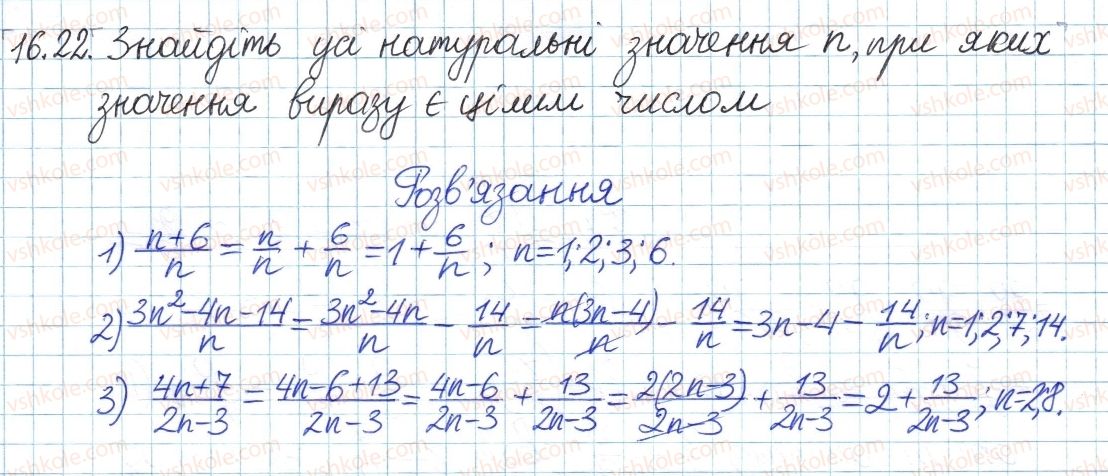 16.22. Знайдіть усі натуральні значення n, при яких
значення виразу є цілим числом
Розв'язання
1) (n+6)/n = n/n + 6/n = 1 + 6/n; n=1; 2; 3; 6.
2) (3n²-4n-14)/n = (3n²-4n)/n - 14/n = n(3n-4)/n - 14/n = 3n-4 - 14/n; n=1; 2; 7; 14.
3) (4n+7)/(2n-3) = (4n-6+13)/(2n-3) = (4n-6)/(2n-3) + 13/(2n-3) = 2(2n-3)/(2n-3) + 13/(2n-3) = 2 + 13/(2n-3); n=2; 8.